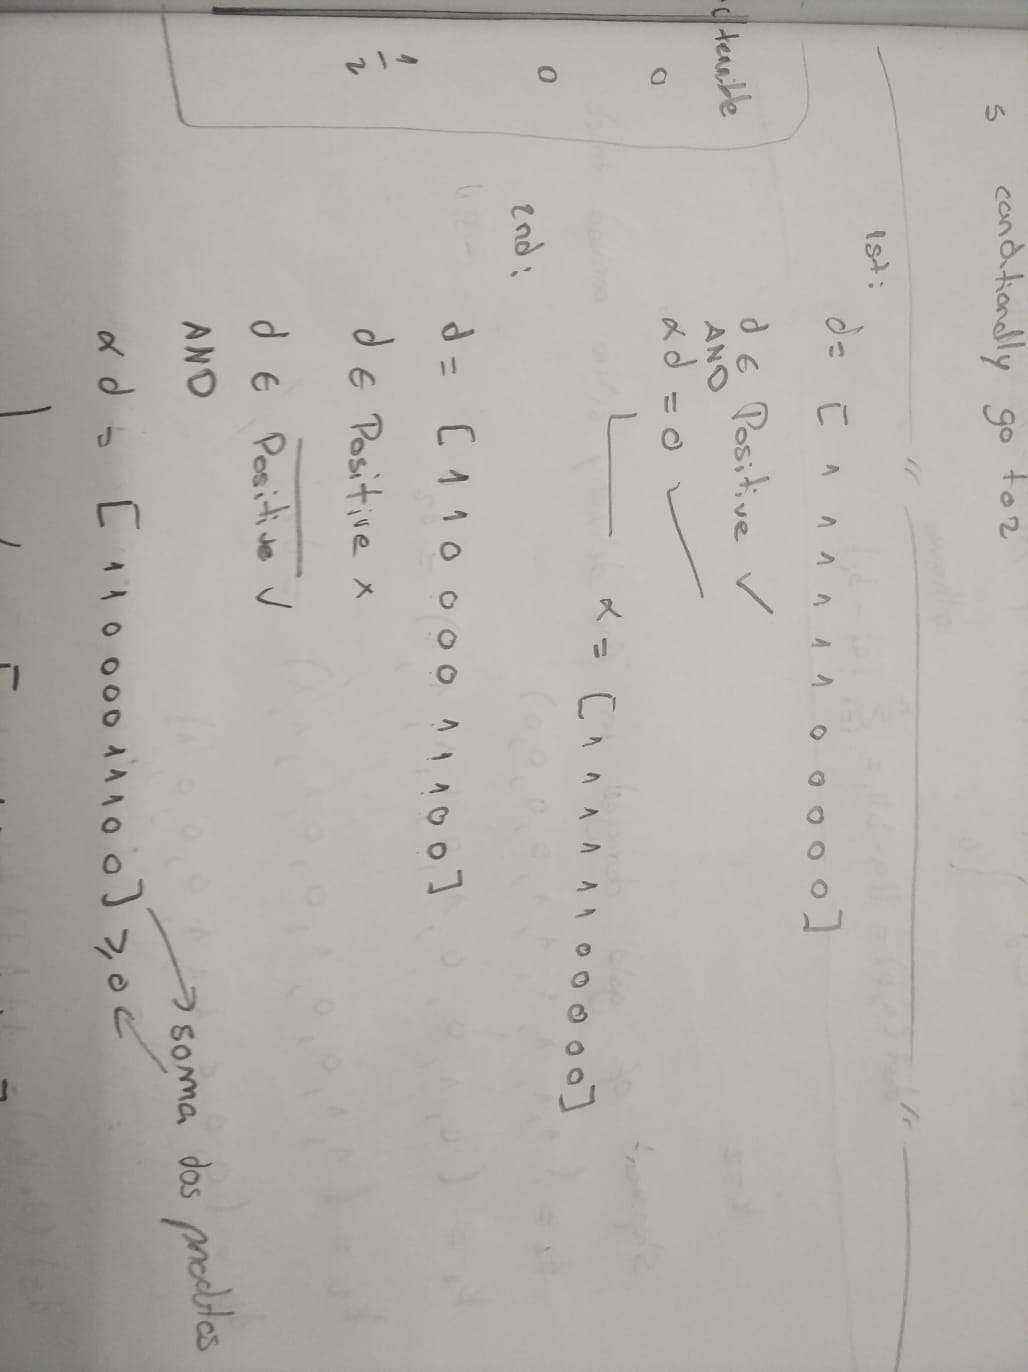 s conditionally go to 2
terrible
0
0
1/2
1st: d = [ 1 1 1 1 1 1 0 0 0 0 0 ]
d ∈ Positive ✓
AND
α d = 0 ✓
α = [ 1 1 1 1 1 1 0 0 0 0 0 ]
2nd:
d = [ 1 1 0 0 0 0 1 1 1 0 0 ]
d ∈ Positive x
d ∈ P̅o̅s̅i̅t̅i̅v̅e̅ ✓
AND
α d = [ 1 1 0 0 0 0 1 1 1 0 0 ] ≥ 0
soma dos prodtos